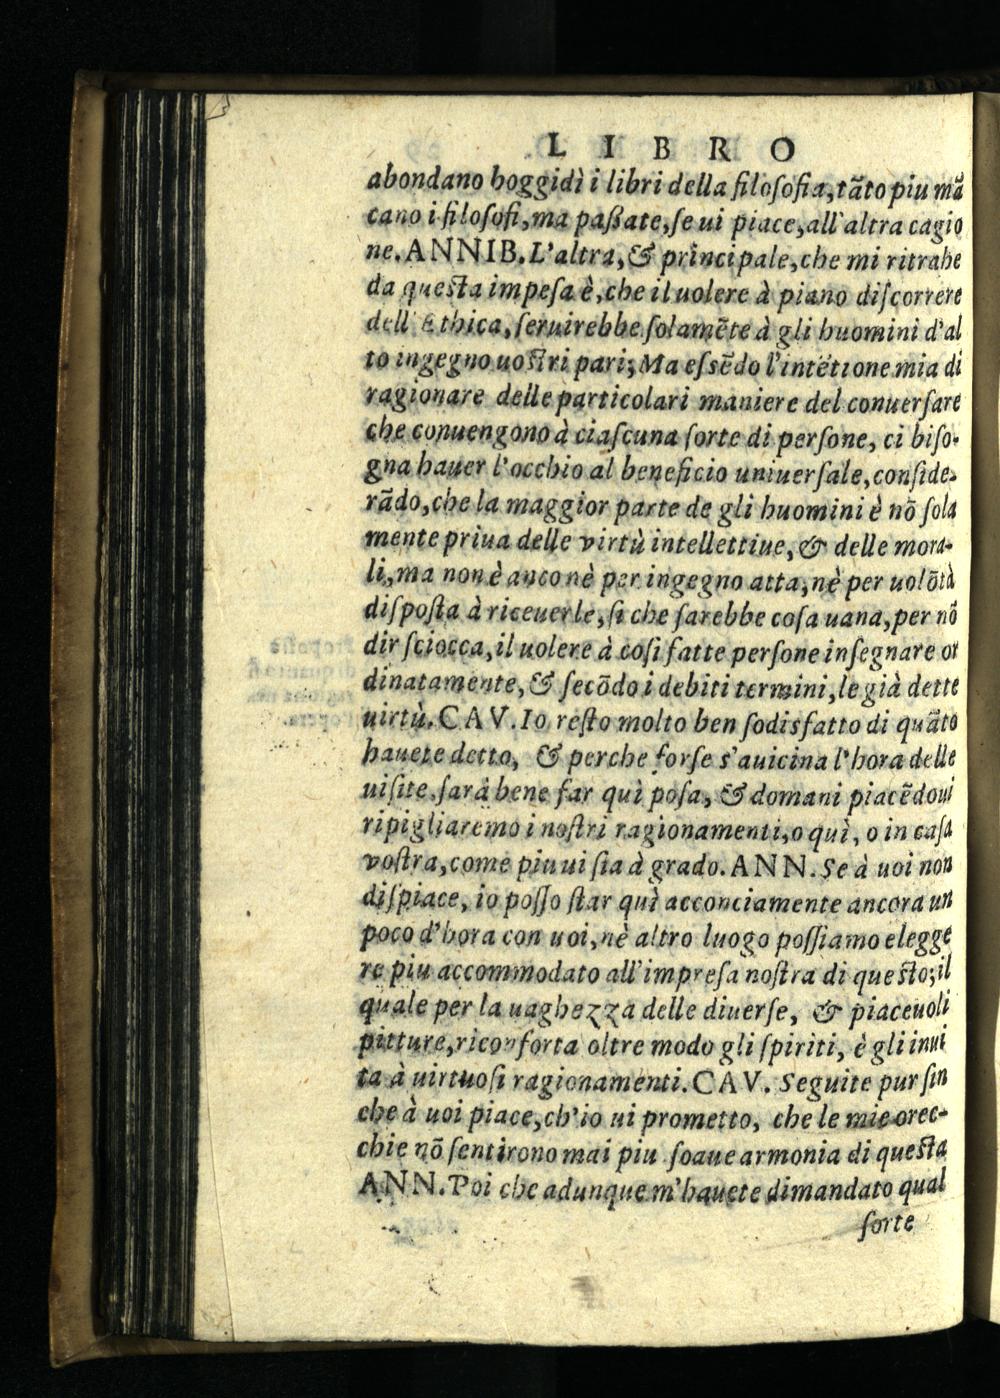 LIBRO
abondano hoggidì i libri della filosofia, tãto piu mã
cano i filosofi, ma paßate, se ui piace, all'altra cagio
ne. ANNIB. L'altra, & principale, che mi ritrahe
da questa impesa è, che il uolere à piano discorrere
dell'Ethica, seruirebbe solamẽte à gli huomini d'al
to ingegno uostri pari; Ma essẽdo l'intẽtione mia di
ragionare delle particolari maniere del conuersare
che conuengono à ciascuna sorte di persone, ci biso-
gna hauer l'occhio al beneficio uniuersale, conside-
rãdo, che la maggior parte de gli huomini è nõ sola
mente priua delle virtù intellettiue, & delle mora-
li, ma non è anco nè per ingegno atta, nè per uolõtà
disposta à riceuerle, si che sarebbe cosa uana, per nõ
dir sciocca, il uolere à cosi fatte persone insegnare or
dinatamente, & secõdo i debiti termini, le già dette
uirtù. CAV. Io resto molto ben sodisfatto di quãto
hauete detto, & perche forse s'auicina l'hora delle
uisite, sarà bene far quì posa, & domani piacẽdoui
ripigliaremo i nostri ragionamenti, o quì, o in casa
vostra, come piu ui sia à grado. ANN. Se à uoi non
dispiace, io posso star quì acconciamente ancora un
poco d'hora con uoi, nè altro luogo possiamo elegge
re piu accommodato all'impresa nostra di questo; il
quale per la uaghezza delle diuerse, & piaceuoli
pitture, riconforta oltre modo gli spiriti, è gli inui
ta à uirtuosi ragionamenti. CAV. Seguite pur fin
che à uoi piace, ch'io ui prometto, che le mie orec-
chie nõ sentirono mai piu soaue armonia di questa
ANN. Poi che adunque m'hauete dimandato qual
sorte